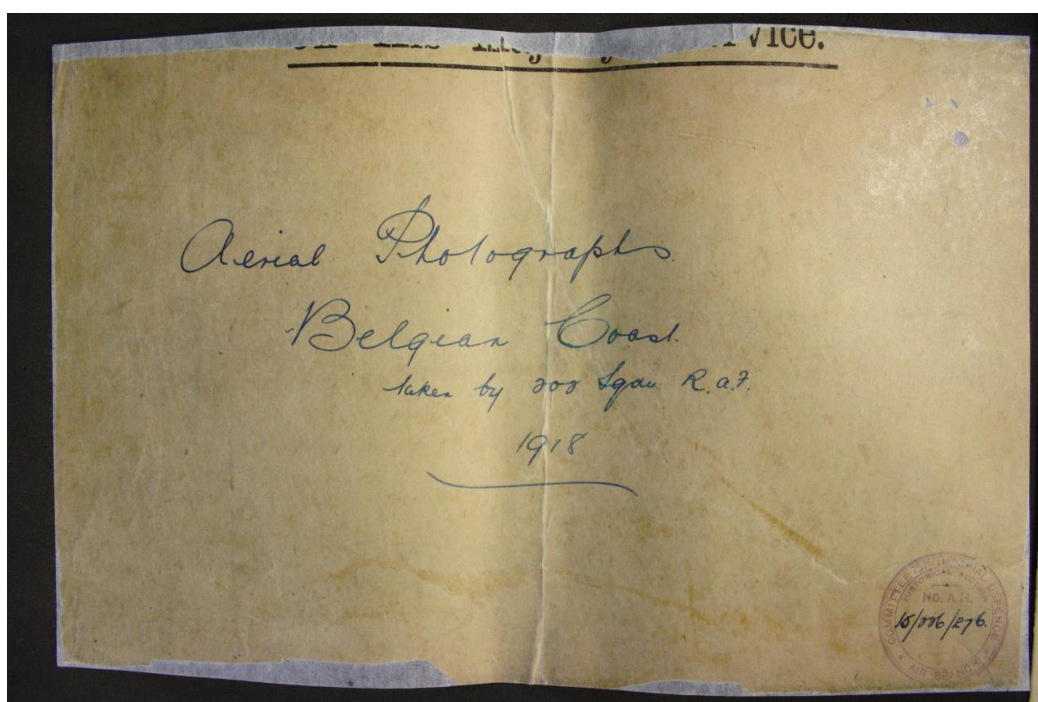 On His Majesty's Service.
Aerial Photographs
Belgian Coast.
taken by 202 Sqdn R.A.F.
1918
COMMITTEE OF IMPERIAL DEFENCE
HISTORICAL SECTION
NO. A.H.
15/226/276.
AIR BRANCH